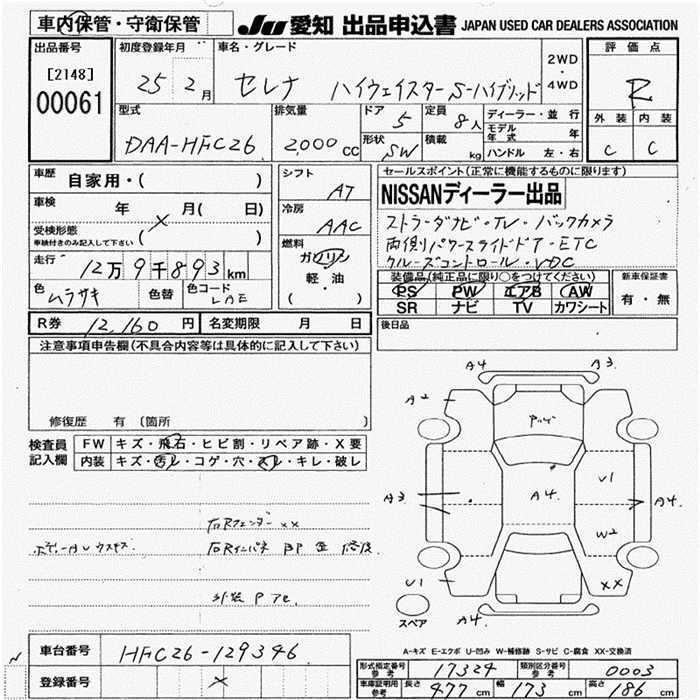 車内保管・守衛保管
JU 愛知 出品申込書 JAPAN USED CAR DEALERS ASSOCIATION
出品番号 初度登録年月 車名・グレード 2WD・4WD 評価点
[2148]
00061 25年2月 セレナ ハイウェイスター S-ハイブリッド R
型式 排気量 ドア 5 定員 8人 ディーラー・並行 外装 内装
DAA-HFC26 2,000cc 形状 SW 積載 kg モデル年式 年 C C
ハンドル 左・右
車歴 自家用・( ) シフト AT セールスポイント(正常に機能するものに限ります)
車検 年 月( 日) 冷房 AAC NISSANディーラー出品
受検形態 ( )
車検付きのみ記入して下さい
ストラーダナビ・TV・バックカメラ
燃料 ガソリン 両側パワースライドドア・ETC
走行 12万9千893km 軽・油 クルーズコントロール・VDC
( )
装備品(純正品に限り○をつけてください) 新車保証書
色 ムラサキ 色替 色コード LAE
PS PW エアB AW 有・無
SR ナビ TV カワシート
R券 12,160円 名変期限 月 日 後日品
注意事項申告欄(不具合内容等は具体的に記入して下さい)
修復歴 有 (箇所
検査員記入欄 FW キズ・飛石・ヒビ割・リペア跡・X要
内装 キズ・汚レ・コゲ・穴・スレ・キレ・破レ
A4 A3
A2
A4 U1
A3 A4
W2
U1 XX
スペア A4
右Rフェンダー xx
ボデーAUウスキズ 右Rインパネ 即 歪 修復
外装 P
A-キズ E-エクボ U-凹み W-補修跡 S-サビ C-腐食 XX-交換済
車台番号 HFC26-129346
登録番号 ×
形式指定番号 参考 17324 類別区分番号 参考 0003
車庫証明用 参考 長さ 477cm 幅 173cm 高さ 186cm